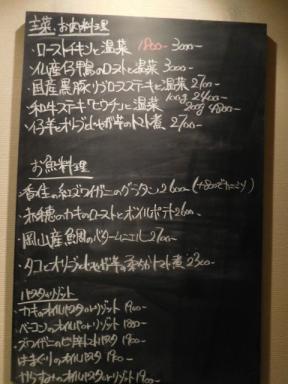 主菜 お肉料理
・ローストチキンと温菜 1800- 3000-
・仏産仔鴨のローストと温菜 3000-
・国産黒豚 ステーキと温菜 2700-
・和牛ステーキ と温菜 100g 2400-
200g 4800-
・仔羊とオリーブとじゃが芋のトマト煮 2700-
お魚料理
・香住の紅ズワイガニのグラタン 2600-
・赤穂のカキのローストとオイルポテト 2600-
・岡山産鯛のバタームニエル 2700-
・タコとオリーブとじゃが芋の柔らかトマト煮 2300-
パスタ・リゾット
・カキのオイルパスタorリゾット 1900-
・ベーコンのオイルパスタorリゾット 1800-
・ズワイガニの パスタ 1900-
・はまぐりのオイルパスタ 1900-
・からすみのオイルパスタorリゾット 1900-